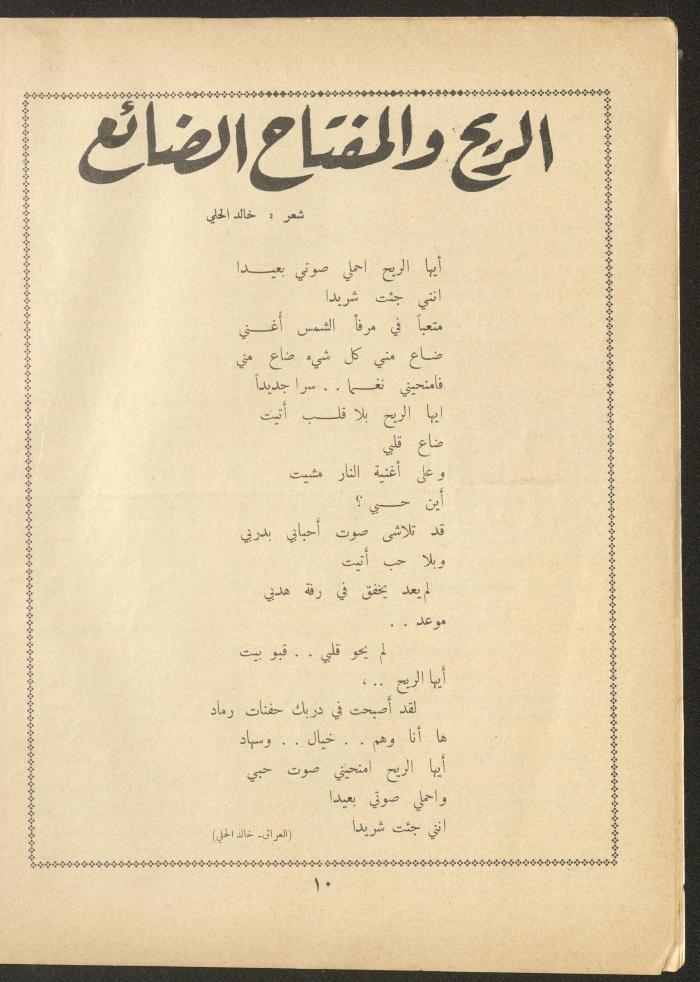 الريح والمفتاح الضائع
شعر : خالد الحلي
أيها الريح احملي صوتي بعيـــدا
انني جئت شريدا
متعباً في مرفأ الشمس أُغـــني
ضاع مني كل شيء ضاع مني
فامنحيني نغـــما . . سرا جديداً
ايها الريح بلا قلـــب أتيت
ضاع قلبي
وعلى أغنية النار مشيت
أين حـــبي ؟
قد تلاشى صوت أحبابي بدربي
وبلا حب أتيت
لم يعد يخفق في رفة هدبي
موعد . .
لم يحو قلبي . . قبو بيت
أيها الريح . . ،
لقد أصبحت في دربك حفنات رماد
ها أنا وهم . . خيال . . وسهاد
أيها الريح امنحيني صوت حبي
واحملي صوتي بعيدا
انني جئت شريدا
(العراق - خالد الحلي)
١٠